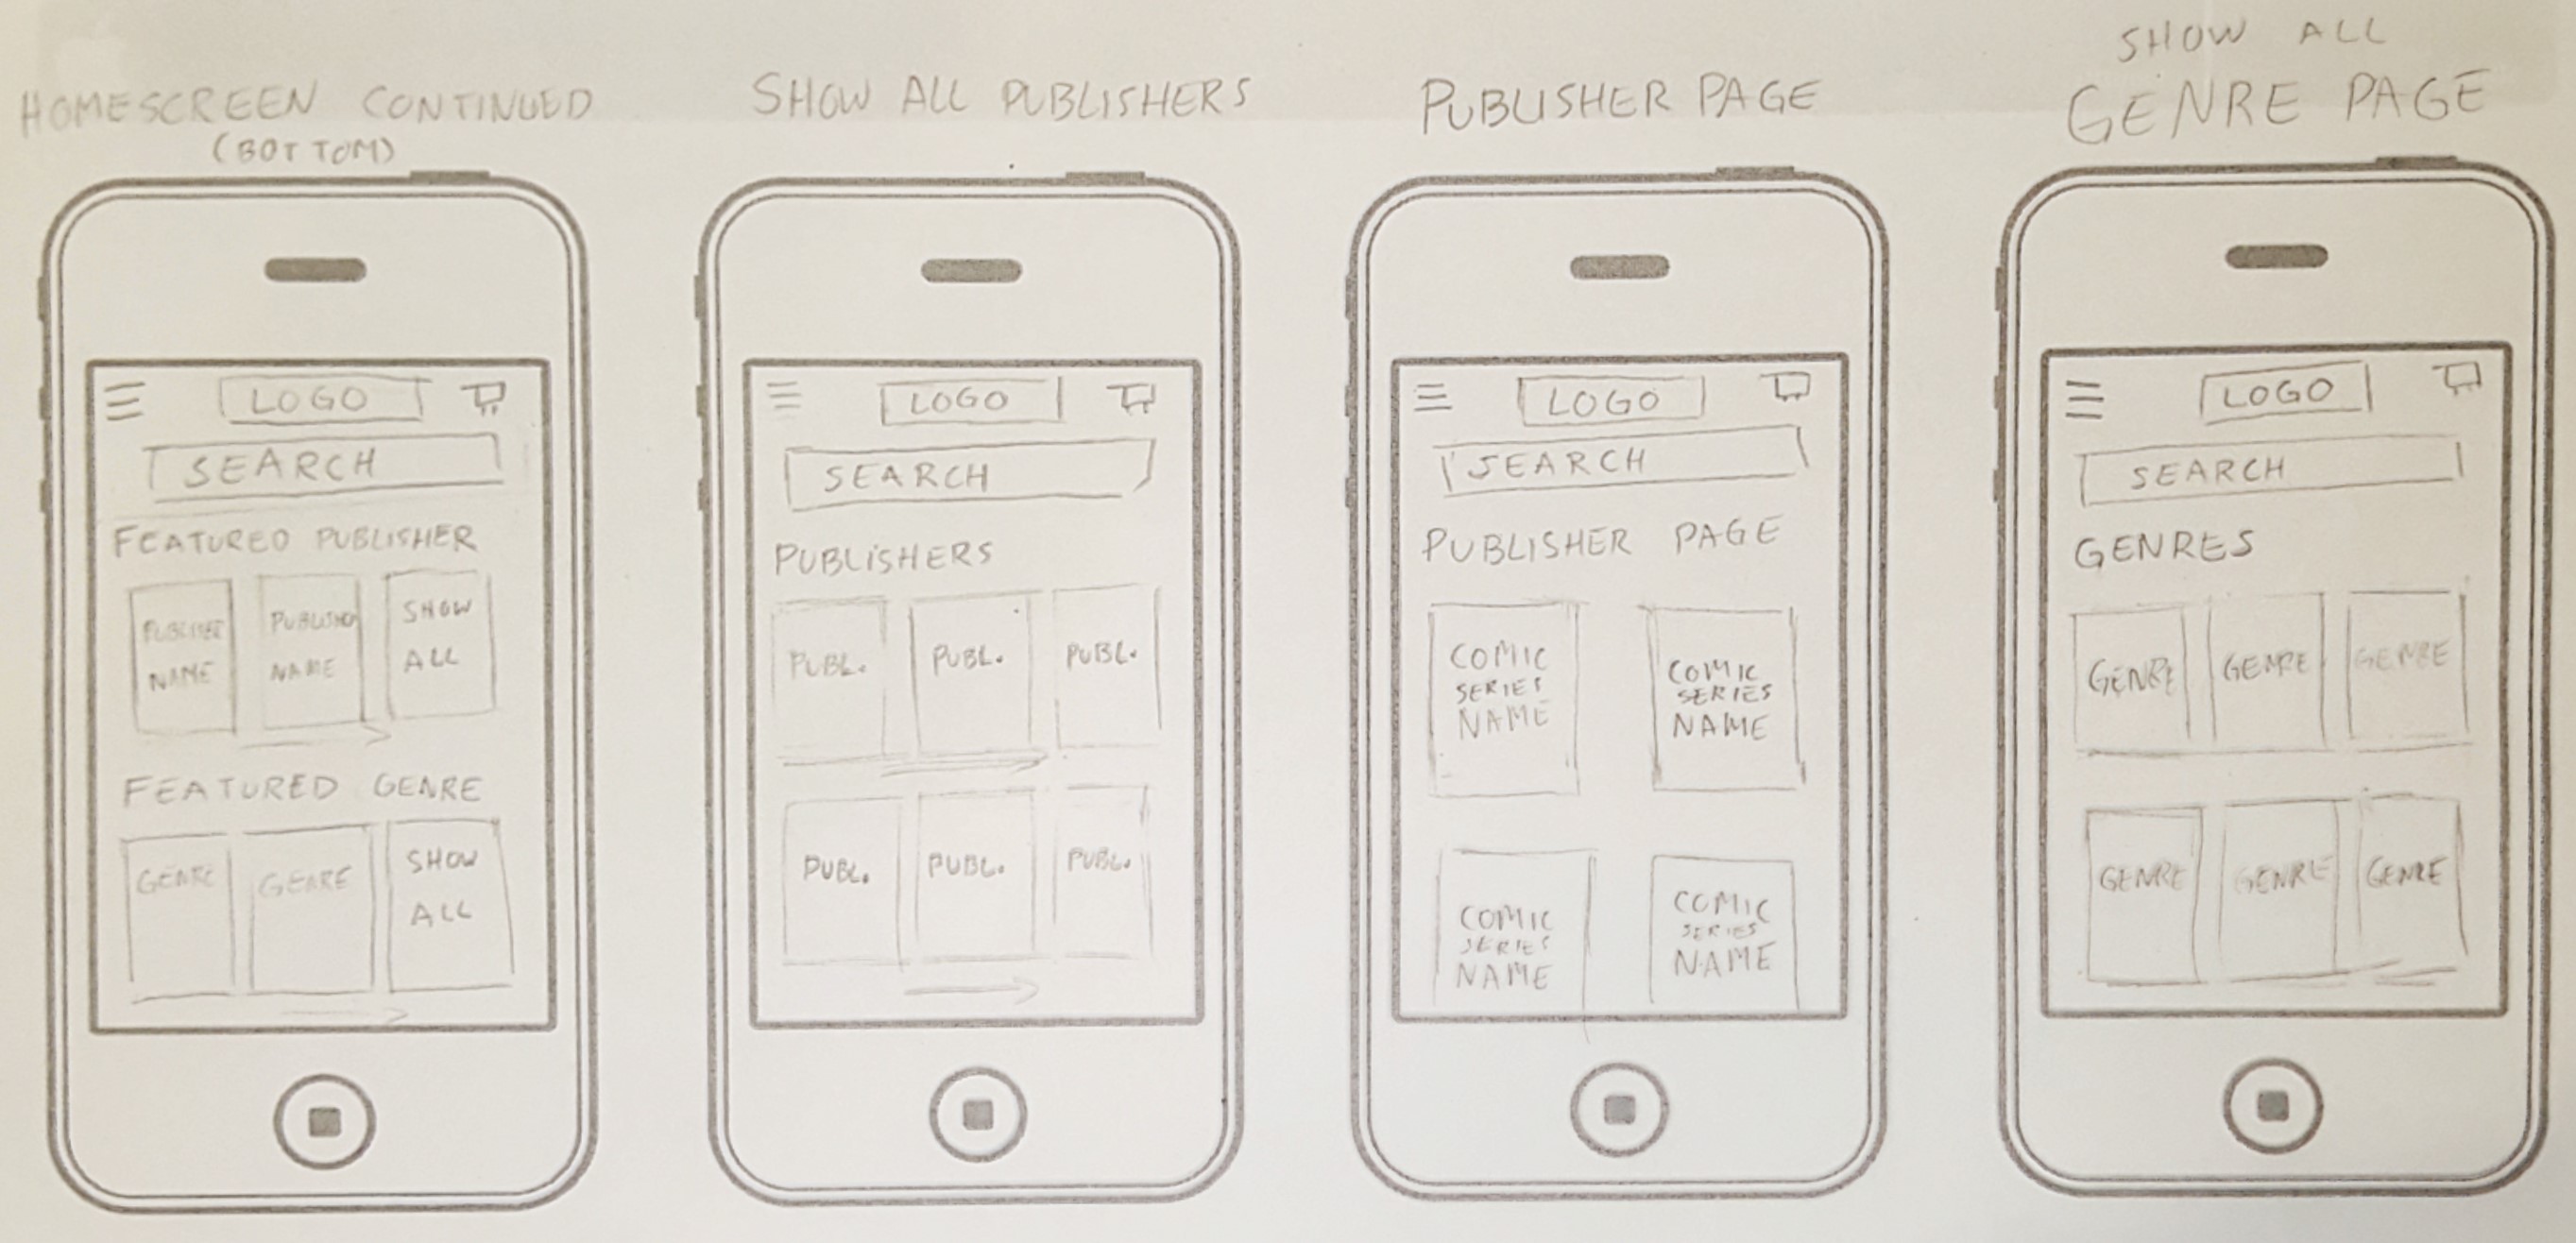 HOMESCREEN CONTINUED
(BOTTOM)
LOGO
SEARCH
FEATURED PUBLISHER
PUBLISHER
NAME
PUBLISHER
NAME
SHOW
ALL
FEATURED GENRE
GENRE
GENRE
SHOW
ALL
SHOW ALL PUBLISHERS
LOGO
SEARCH
PUBLISHERS
PUBL.
PUBL.
PUBL.
PUBL.
PUBL.
PUBL.
PUBLISHER PAGE
LOGO
SEARCH
PUBLISHER PAGE
COMIC
SERIES
NAME
COMIC
SERIES
NAME
COMIC
SERIES
NAME
COMIC
SERIES
NAME
SHOW ALL
GENRE PAGE
LOGO
SEARCH
GENRES
GENRE
GENRE
GENRE
GENRE
GENRE
GENRE